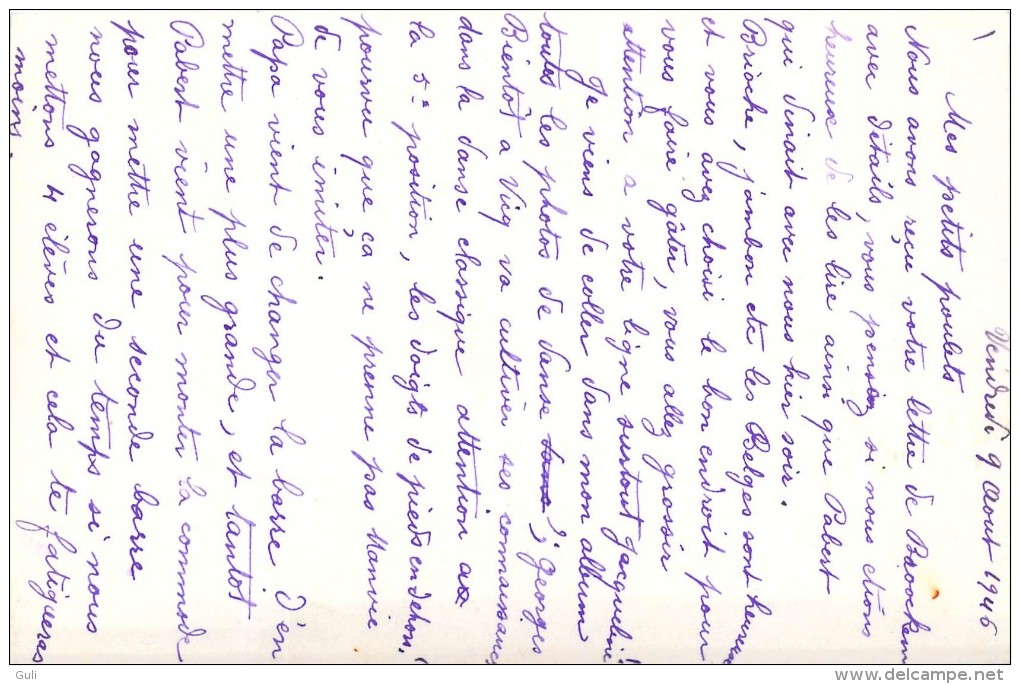 Vendredi 9 Aout 1946
1
Mes petits poulets
Nous avons reçu votre lettre de
avec détails, vous pensiez si nous étions
heureux de les lire ainsi que Pabert
qui dinait avec nous hier soir.
Brioche, jambon etc les Belges sont heureux
et vous avez choisi le bon endroit pour
vous faire gâter, vous allez grossir
attention a votre ligne surtout Jacqueline!
Je viens de coller dans mon album
toutes les photos de danse Georges
Bientôt a Viry va cultiver ses connaissances
dans la danse classique attention aux
la 5e position, les doigts de pieds en dehors!
pourvu que ça ne prenne pas Manvie
de vous imiter.
Papa vient de changer la barre d'en
mettre une plus grande, et tantôt
Pabert vient pour monter la commande
pour mettre une seconde barre
nous gagnerons du temps si nous
mettons 4 élèves et cela te fatigueras
moins.
Guli
www.delcampe.net